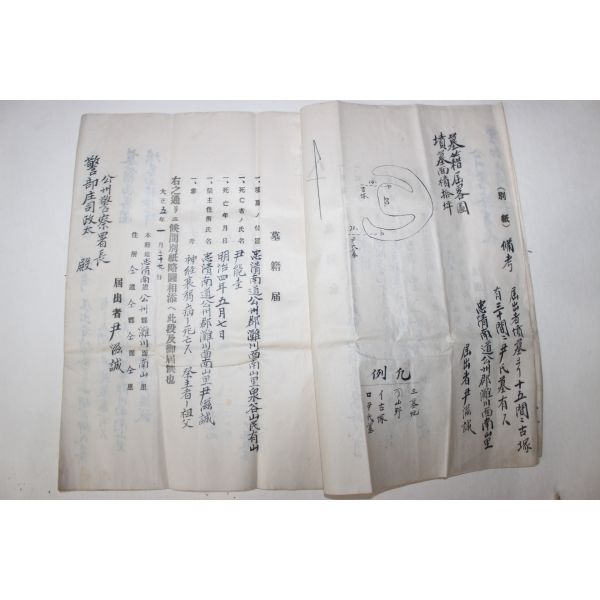 (別紙)
備考
届出者墳墓ヨリ十五間ニ古塚
有三十間尹氏墓有人
忠清南道公州郡灘川面南山里
届出者尹滋誠
墓籍届畧圖
墳墓面積拾坪
古塚
凡例
山野
イ古塚
墓籍届
一、墳墓ノ位置 忠清南道公州郡灘川面南山里泉谷山民有山
一、死亡者ノ氏名
一、死亡年月日 明治四年五月七日
一、祭主住所氏名 忠清南道公州郡灘川面南山里尹滋誠
一、備考 神経衰弱病ニ死亡人 祭主者ノ祖父
右之通リニ候間別紙略圖相添ヘ此段及御届候也
大正五年一月二十九日
本籍地忠清南道公州郡灘川面南山里
住所仝道仝郡仝面仝里
届出者尹滋誠
公州警察署長
警部庄司政太殿